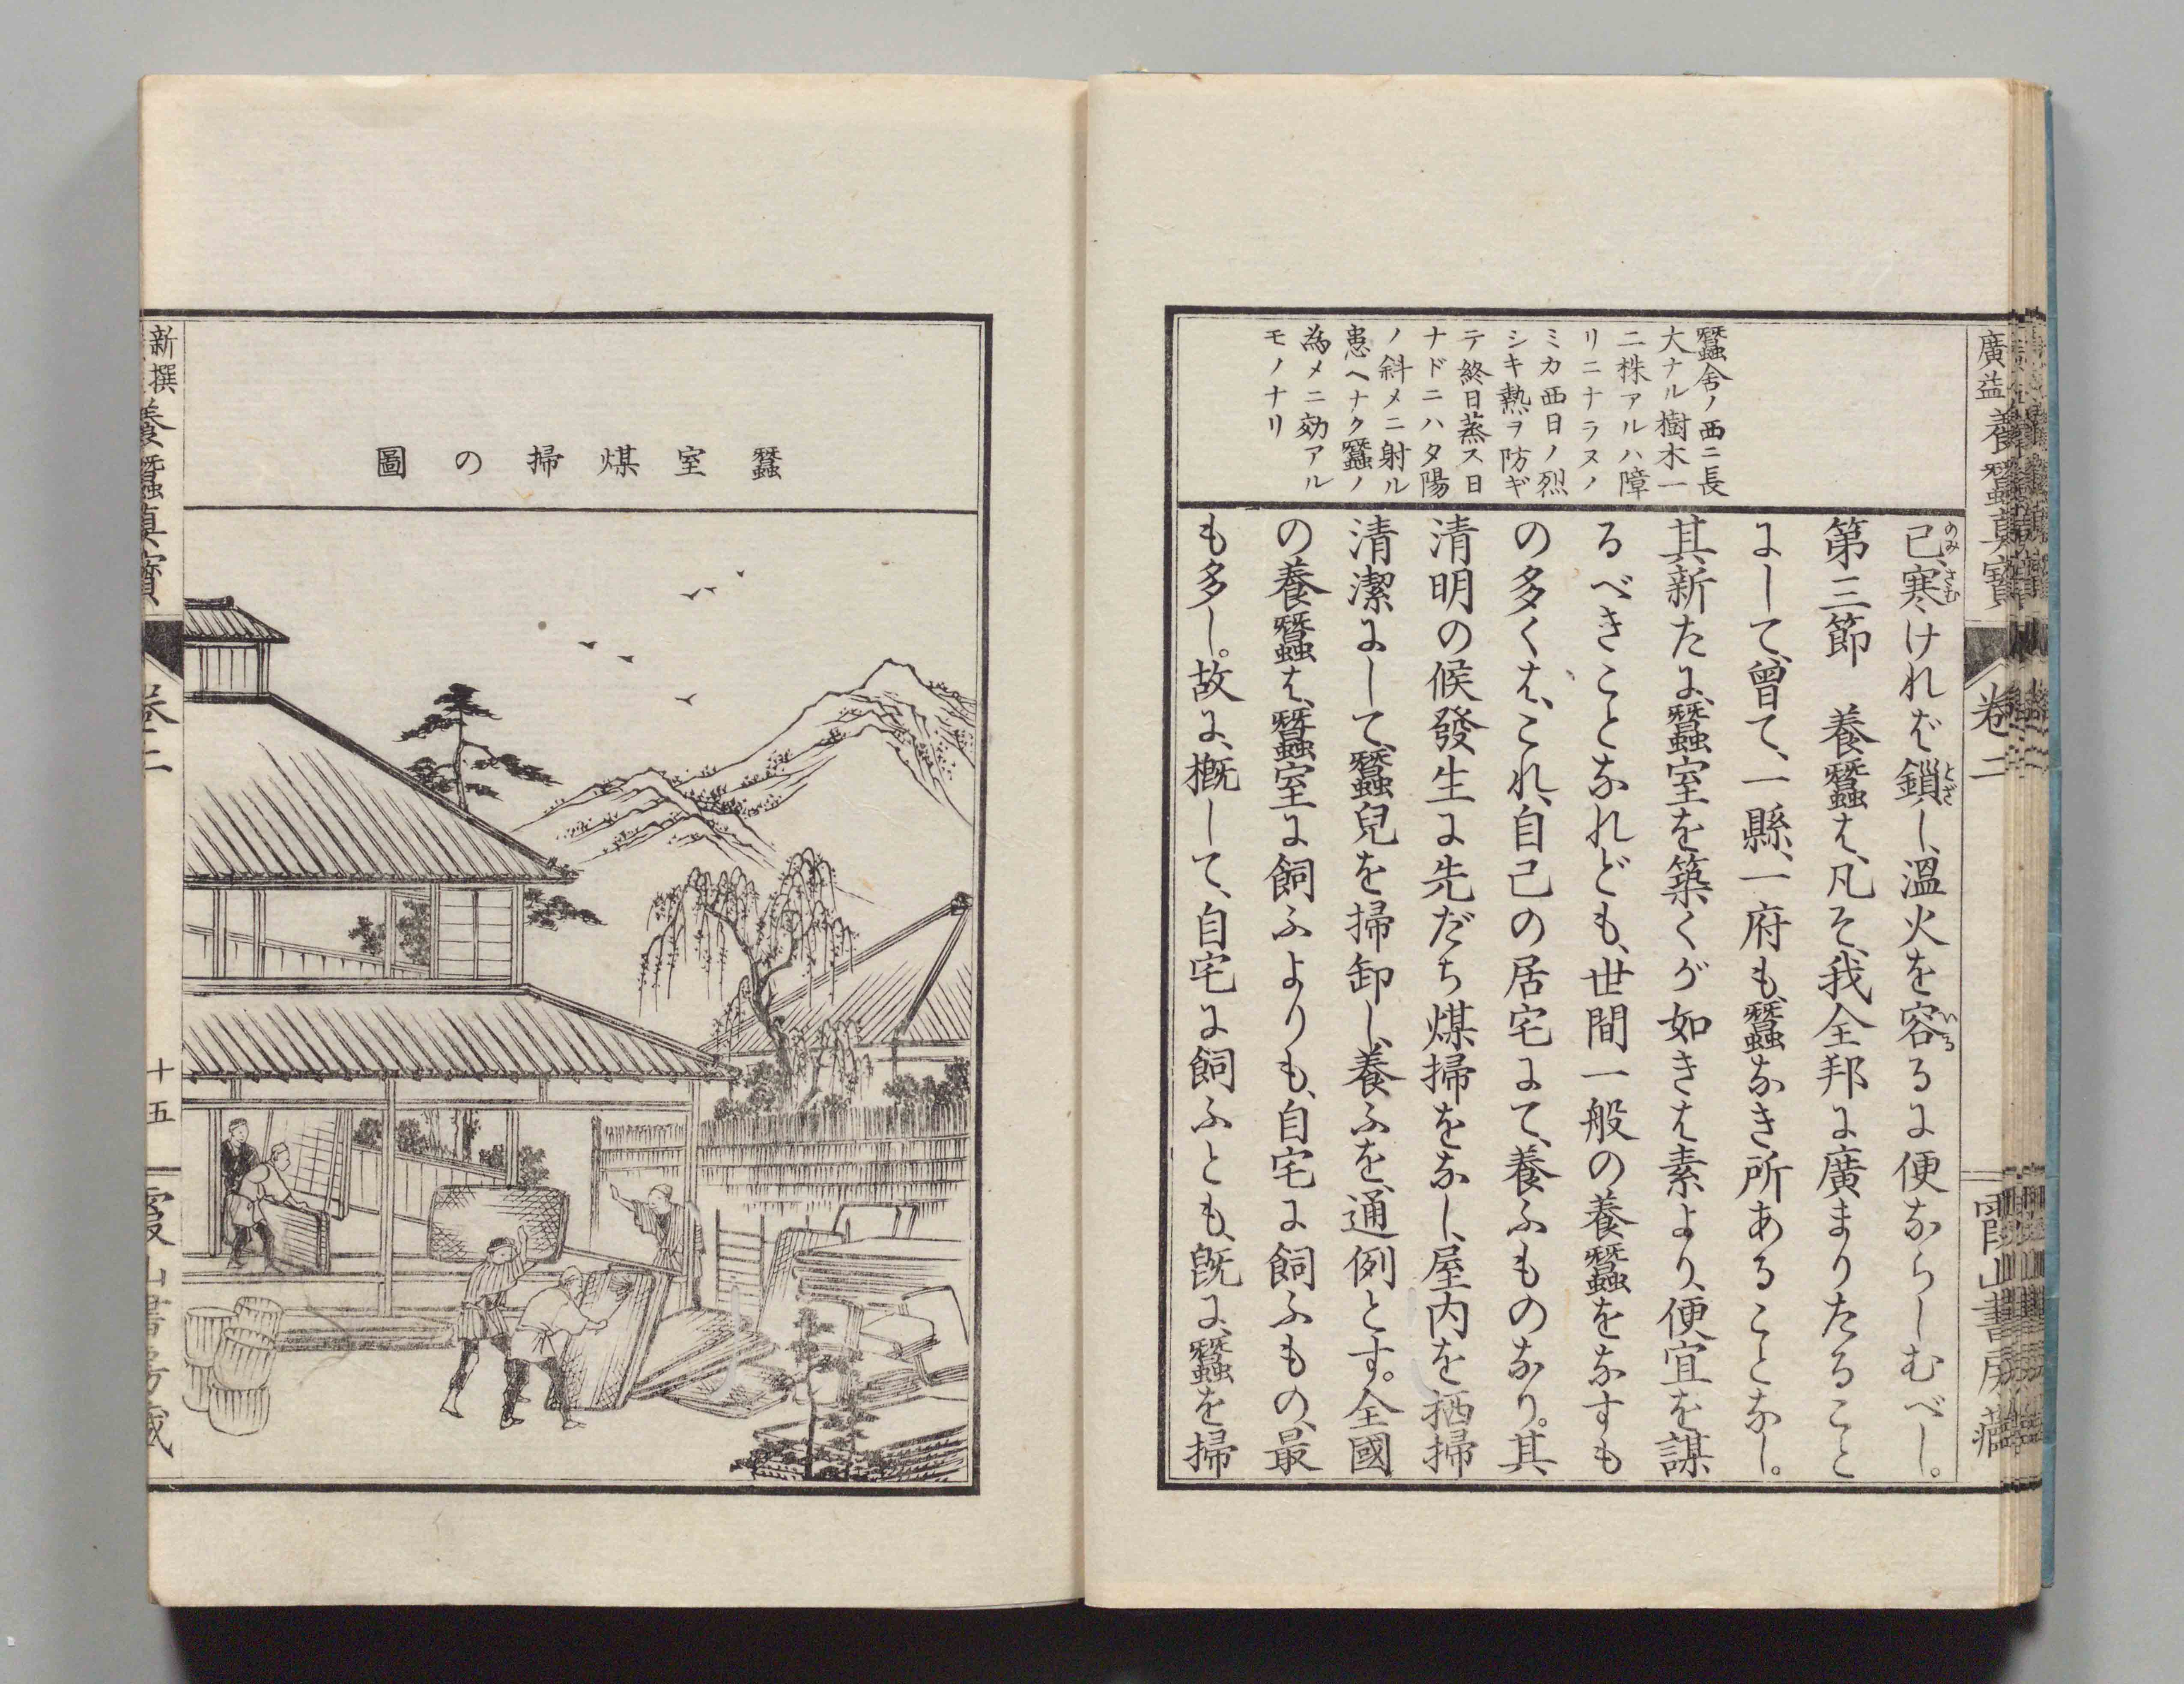 廣益養蠶真寶 卷二 霞山書房藏
蠶舍ノ西ニ長
大ナル樹木一
二株アルハ障
リニナラヌノ
ミカ西日ノ烈
シキ熱ヲ防ギ
テ終日蒸ス日
ナドニハタ陽
ノ斜メニ射ル
患ヘナク蠶ノ
為メニ効アル
モノナリ
已、寒けれバ鎖し、溫火を容るに便ならしむべし。
のみ さむ とざ いる
第三節 養蠶は、凡そ、我全邦に廣まりたること
にして、曾て、一縣、一府も、蠶なき所あることなし。
其新たに、蠶室を築くが如きは素より、便宜を謀
るべきことなれども、世間一般の養蠶をなすも
の多くは、これ、自己の居宅にて、養ふものなり。其
清明の候發生に先だち煤掃をなし、屋内を栖掃
清潔にして、蠶兒を掃卸し、養ふを、通例とす。全國
の養蠶は、蠶室に飼ふよりも、自宅に飼ふもの、最
も多し。故に、概して、自宅に飼ふとも、既に、蠶を掃
蠶室煤掃の圖
新撰養蠶真寶 卷二 十五 霞山書房藏